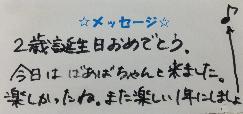 ☆メッセージ☆
2歳誕生日おめでとう。
今日はばあばちゃんと来ました。
楽しかったね。また楽しい1年にしましょ